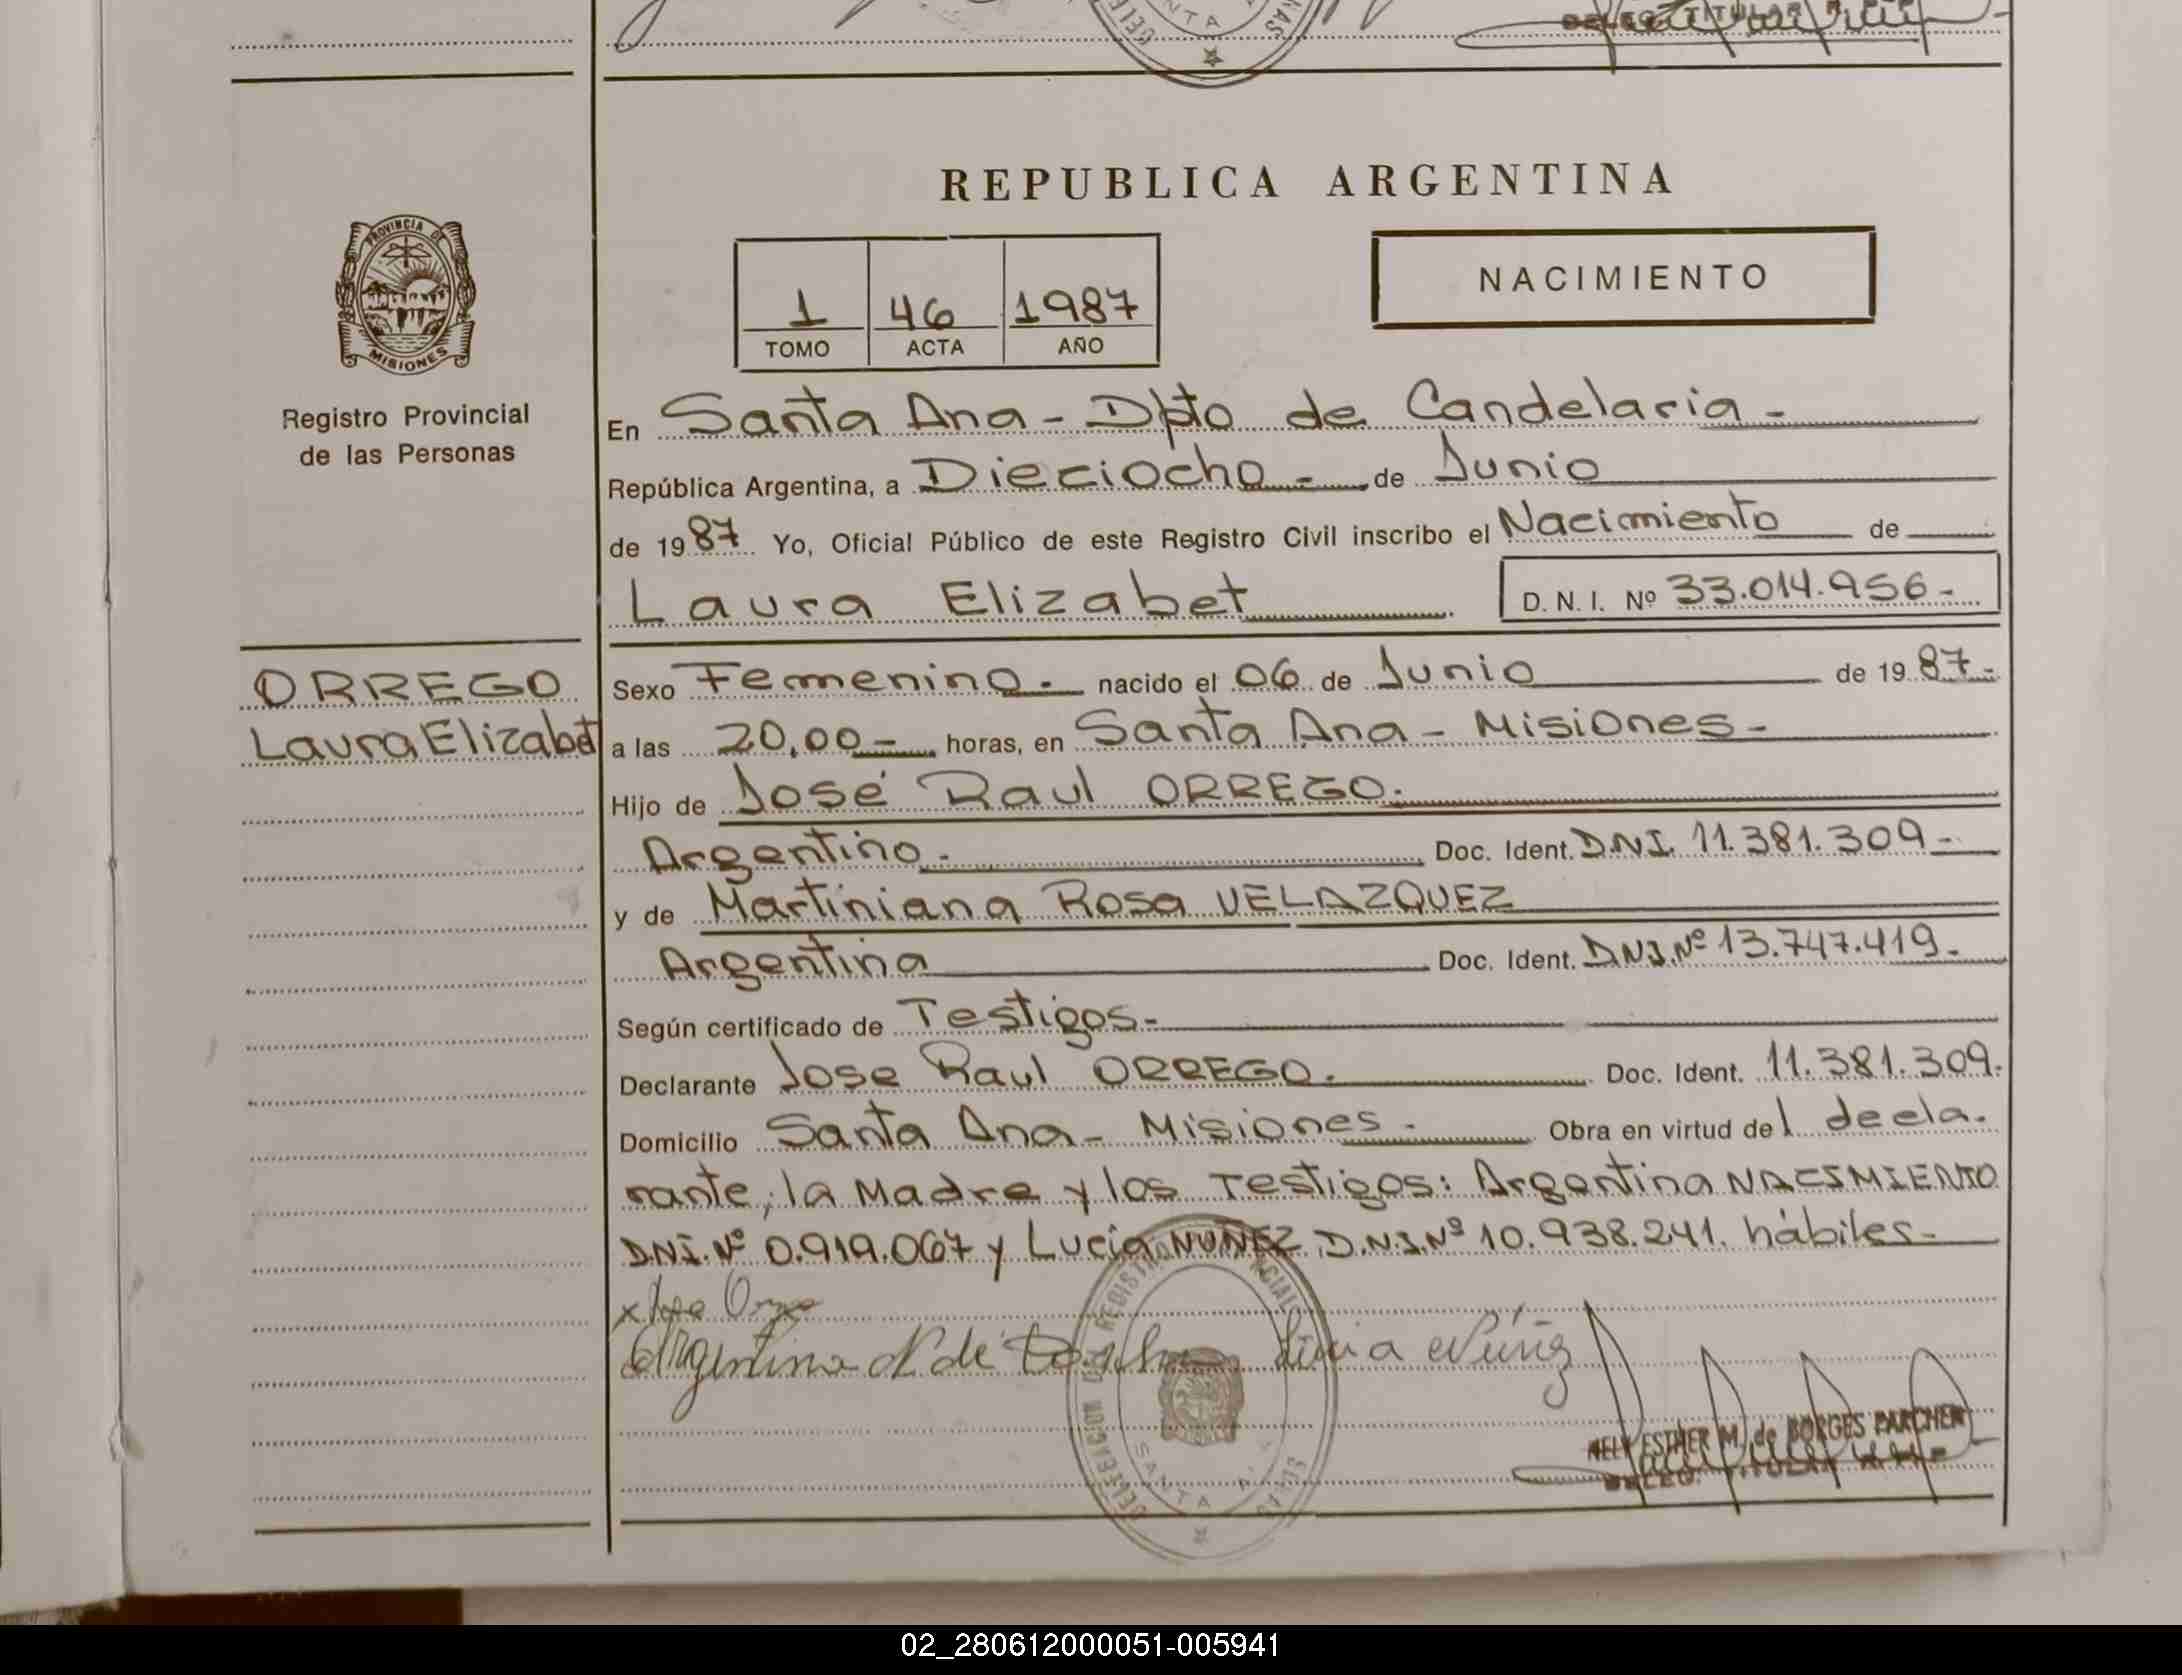 DELEG. TITULAR
REPUBLICA ARGENTINA
PROVINCIA DE
MISIONES
Registro Provincial
de las Personas
1 46 1987
TOMO ACTA AÑO
NACIMIENTO
En Santa Ana - Dpto de Candelaria -
República Argentina, a Dieciocho - de Junio
de 1987 Yo, Oficial Público de este Registro Civil inscribo el Nacimiento de
Laura Elizabet D. N. I. Nº 33.014.956 -
ORREGO
Laura Elizabet
Sexo Femenino. nacido el 06 de Junio de 1987 -
a las 20,00 - horas, en Santa Ana - Misiones -
Hijo de José Raul ORREGO.
Argentino - Doc. Ident. D.N.I. 11.381.309 -
y de Martiniana Rosa VELAZQUEZ
Argentina Doc. Ident. D.N.I. Nº 13.747.419 -
Según certificado de Testigos -
Declarante Jose Raul ORREGO. Doc. Ident. 11.381.309.
Domicilio Santa Ana - Misiones - Obra en virtud de l decla.
rante, la Madre y los Testigos: Argentina NACIMIENTO
D.N.I. Nº 0.919.067 y Lucia NUÑEZ D.N.I. Nº 10.938.241. hábiles -
x Jose Orrego
Argentina N de Lucia Núñez
DELEGACION DE REGISTRO PROVINCIAL
SANTA ANA
NELY ESTHER M. de BORGES PARCHEN
DELEG. TITULAR
02_280612000051-005941